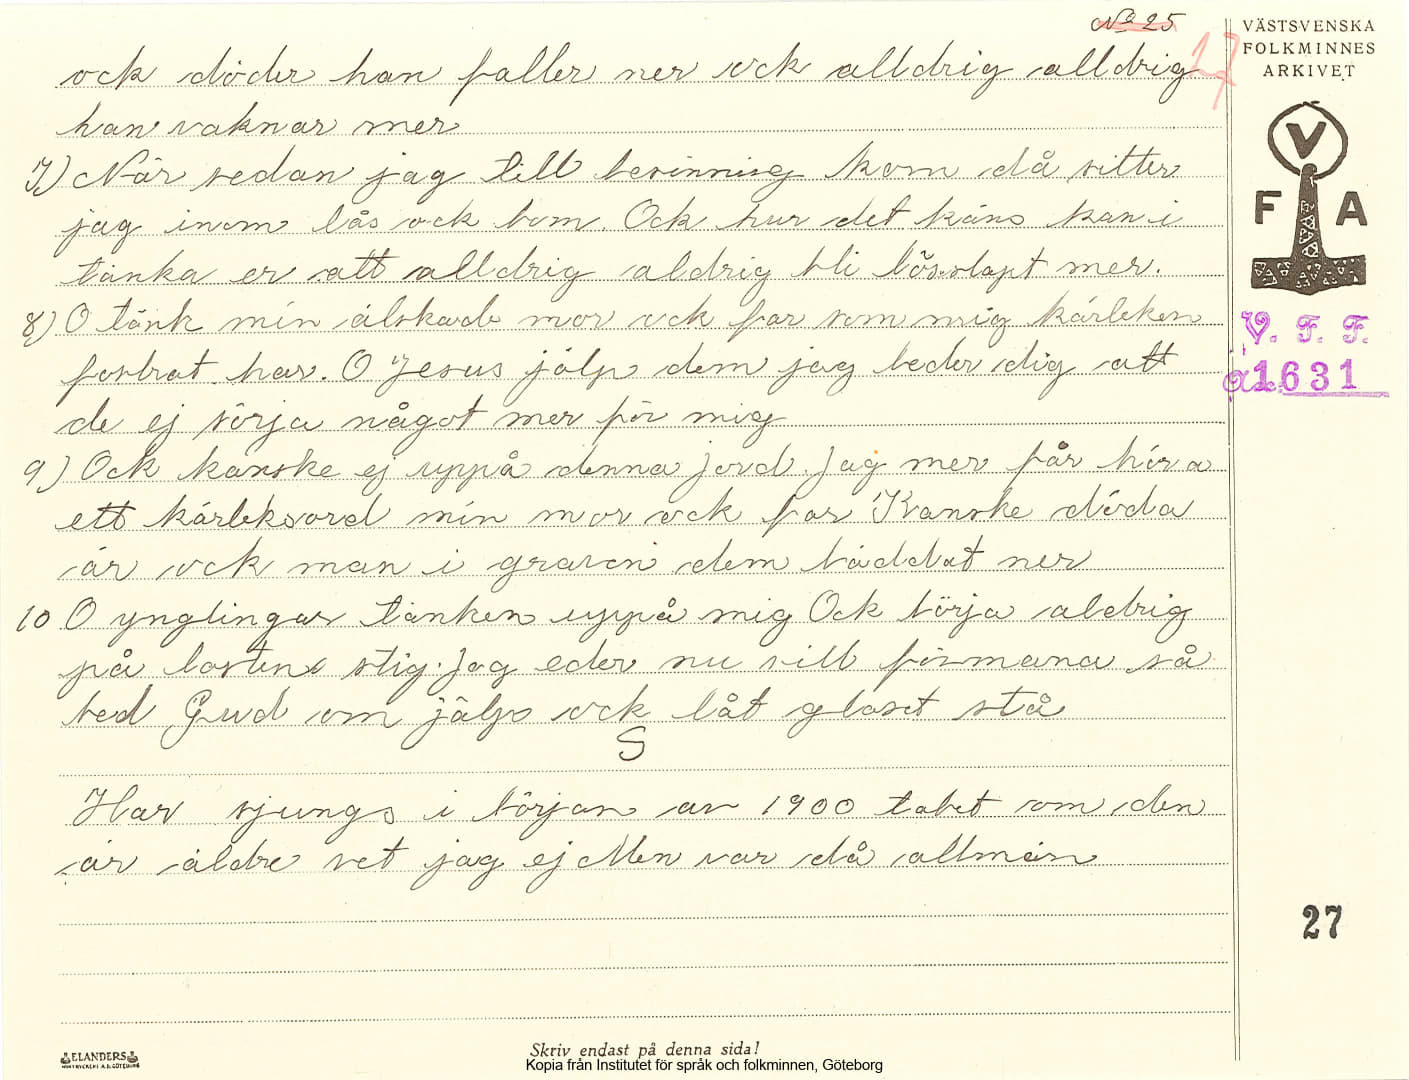 No 25
17
VÄSTSVENSKA
FOLKMINNES
ARKIVET
V
F A
V. F. F.
1631
ock döder han faller ner ock alldrig alldrig
han vaknar mer
7) När sedan jag till besinning kom då sitter
jag inom lås ock bom. Ock hur det käns kan i
tänka er att alldrig aldrig bli lössläpt mer.
8) O tänk min älskade mor ock far som mig kärleken
fostrat har. O Jesus jälp dem jag beder dig att
de ej sörja något mer för mig
9) Ock kanske ej uppå denna jord. Jag mer får höra
ett kärleksord min mor ock far Kanske döda
är ock man i graven dem bäddat ner
10 O ynglingar tänken uppå mig Ock börja aldrig
på lastens stig. Jag eder nu vill förmana så
bed Gud om jälp ock låt glaset stå
S
Har sjungs i början av 1900 talet om den
är äldre vet jag ej Men var då allmän
27
ELANDERS
Skriv endast på denna sida!
Kopia från Institutet för språk och folkminnen, Göteborg